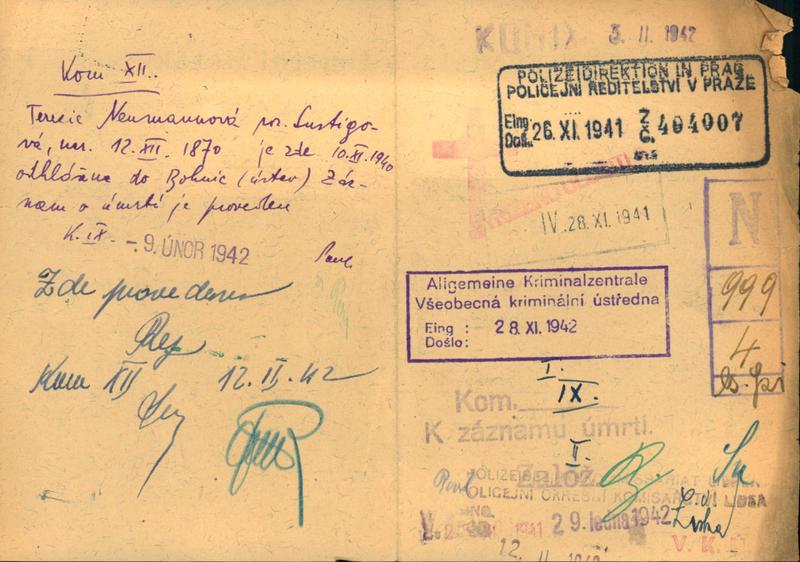 Kom XII.
Terezie Neumannová roz. Lustigo-
vá, nar. 12.XII. 1870 je zde 10.XI.1940
odhlášena do Bohnic (ústav) Záz-
nam o úmrtí je proveden
K.IX. - 9. ÚNOR 1942
Pavl
Zde provedeno
Kom XII 12.II.42
KOM IX 3. II. 1942
POLIZEIDIREKTION IN PRAG
POLICEJNÍ ŘEDITELSTVÍ V PRAZE
Eing. Došlo: 26. XI. 1941 Z Č. 404007
IV. 28. XI. 1941
N
999
4
Allgemeine Kriminalzentrale
Všeobecná kriminální ústředna
Eing : 28. XI. 1942
Došlo:
I.
Kom. IX.
K záznamu úmrtí.
II.
Založ.
POLICEJNÍ OKRESNÍ KOMISAŘSTVÍ
1941 29. ledna 1942
V. K. Ú.
12. II. 1942